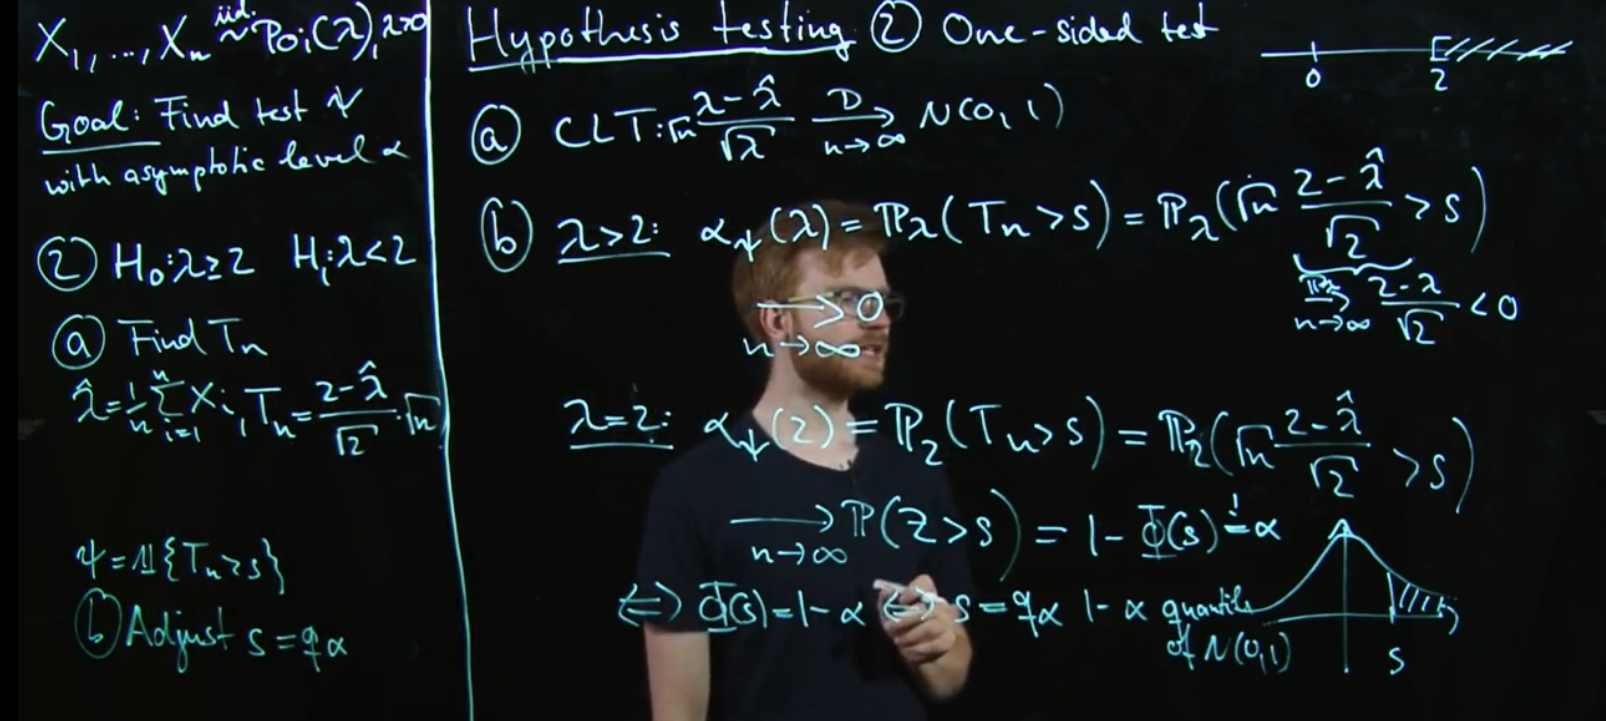 X₁, ..., Xₙ iid ~ Poi(λ), λ>0
Goal: Find test ψ
with asymptotic level α
② H₀: λ≥2 H₁: λ<2
ⓐ Find Tₙ
λ̂ = 1/n Σᵢ₌₁ⁿ Xᵢ, Tₙ = (2-λ̂)/√2 · √n
ψ = 𝟙{Tₙ>s}
ⓑ Adjust s = qα
Hypothesis testing ② One-sided test
0 2
ⓐ CLT: √n (λ-λ̂)/√λ →ᴰ n→∞ N(0,1)
ⓑ λ>2: αψ(λ) = ℙλ(Tₙ>s) = ℙλ(√n (2-λ̂)/√2 > s)
→ℙλ n→∞ (2-λ)/√2 < 0
→ n→∞ 0
λ=2: αψ(2) = ℙ₂(Tₙ>s) = ℙ₂(√n (2-λ̂)/√2 > s)
→ n→∞ ℙ(Z>s) = 1-Φ(s) =! α
⇔ Φ(s) = 1-α ⇔ s = qα 1-α quantile
of N(0,1)
s